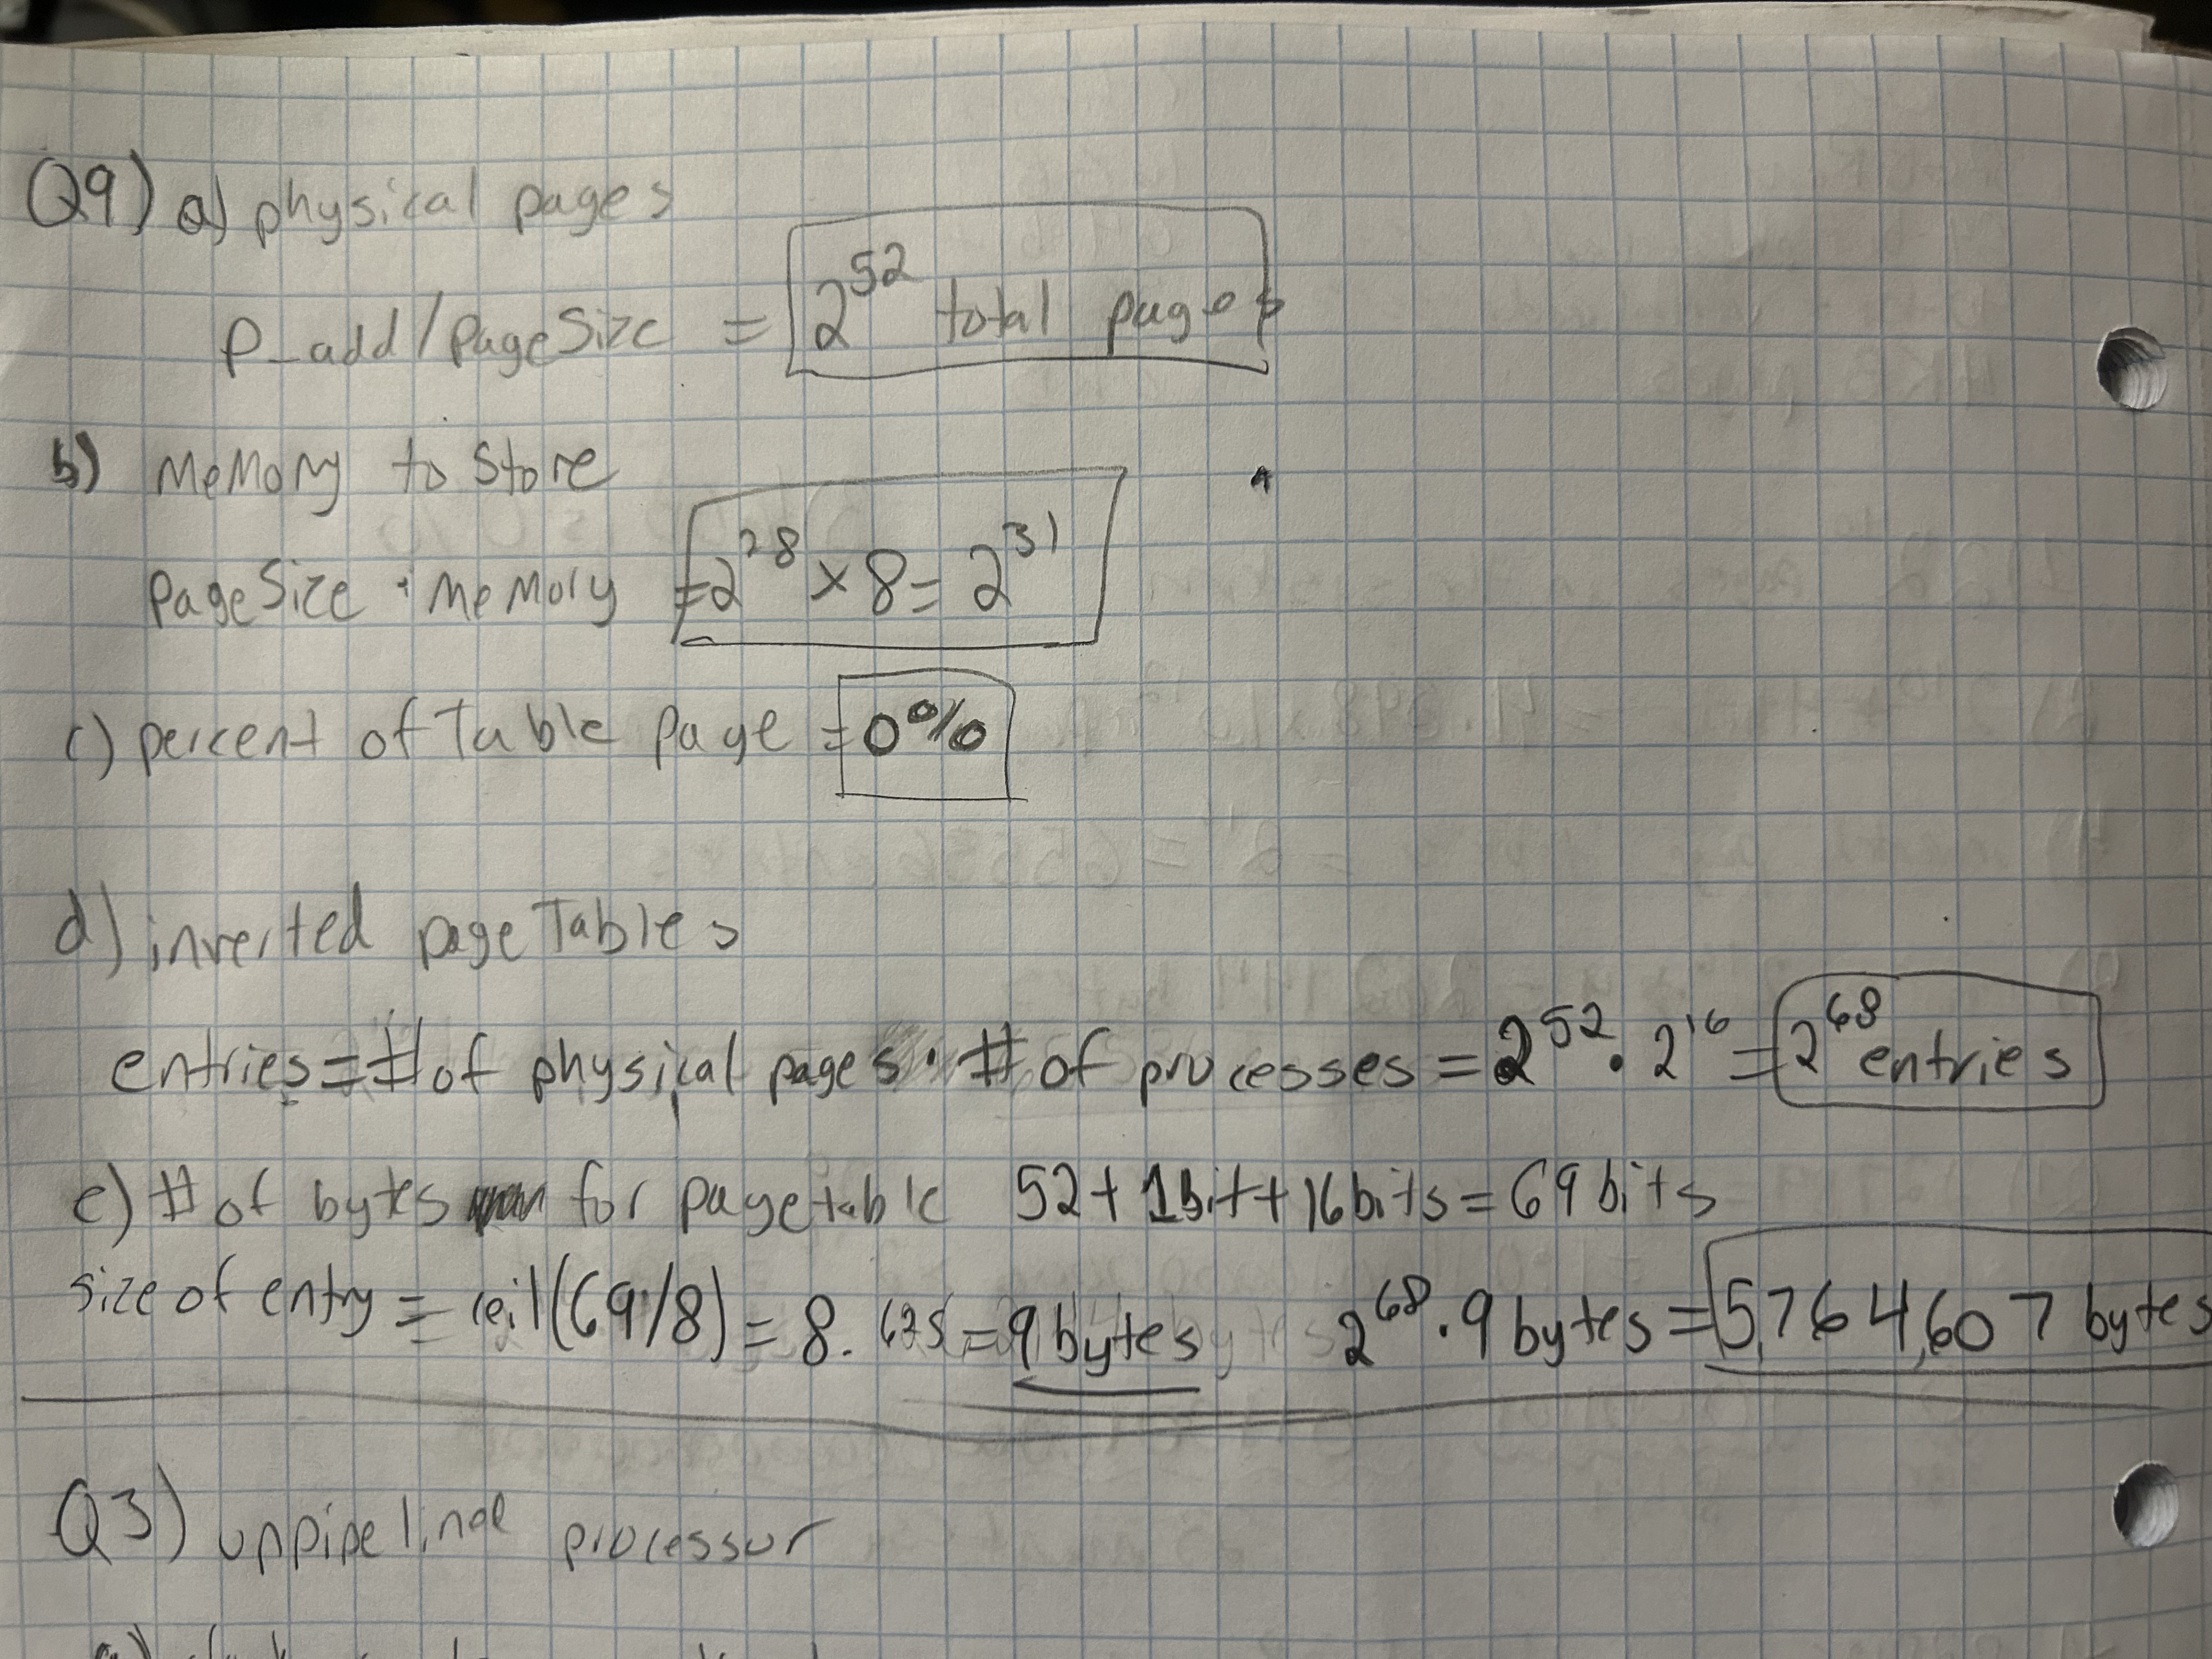 Q9) a) physical pages
p_add/pageSize = 2^52 total pages
b) Memory to store
pageSize · memory = 2^28 x 8 = 2^31
c) percent of Table page = 0%
d) inverted page Tables
entries = # of physical pages · # of processes = 2^52 · 2^16 = 2^68 entries
e) # of bytes for pagetable 52 + 1bit + 16bits = 69 bits
size of entry = ceil(69/8) = 8. = 9 bytes 2^68 · 9 bytes = 5,764,607 bytes
Q3) unpipelined processor